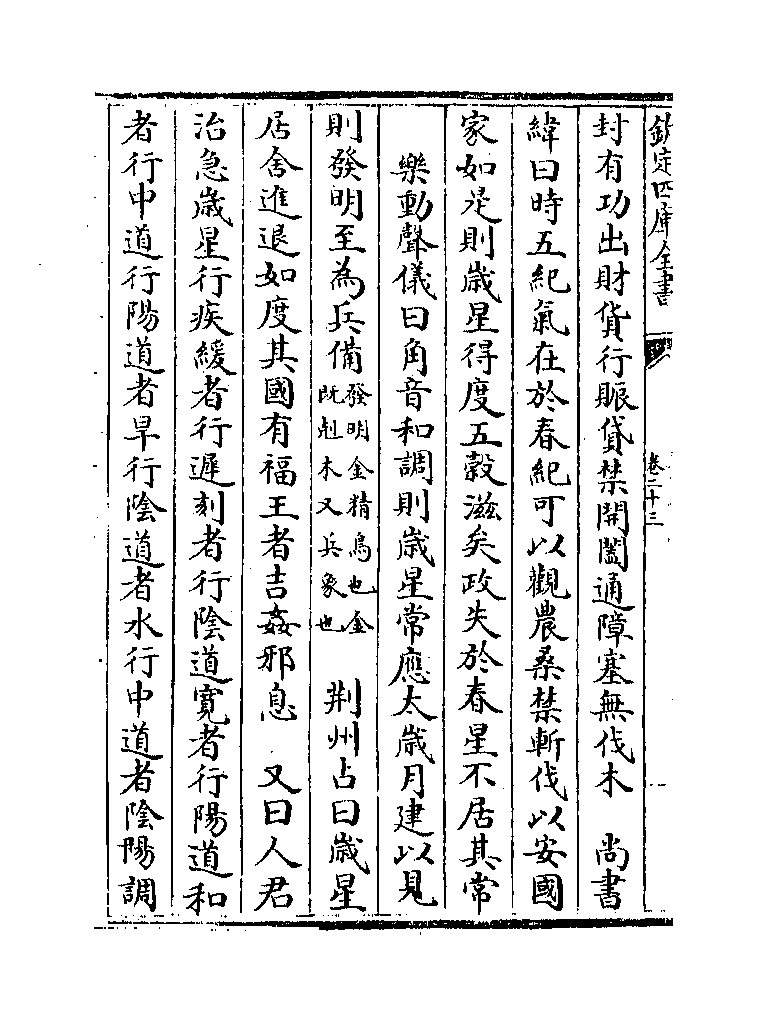 欽定四庫全書
卷二十三
封有功出財貨行賑貸禁開闔通障塞無伐木　尚書
緯曰時五紀氣在於春紀可以觀農桑禁斬伐以安國
家如是則歲星得度五穀滋矣政失於春星不居其常
樂動聲儀曰角音和調則歲星常應太歲月建以見
則發明至為兵備發明金精鳥也金既剋木又兵象也　荆州占曰歲星
居舍進退如度其國有福王者吉姦邪息　又曰人君
治急歲星行疾緩者行遲刻者行陰道寬者行陽道和
者行中道行陽道者旱行陰道者水行中道者陰陽調